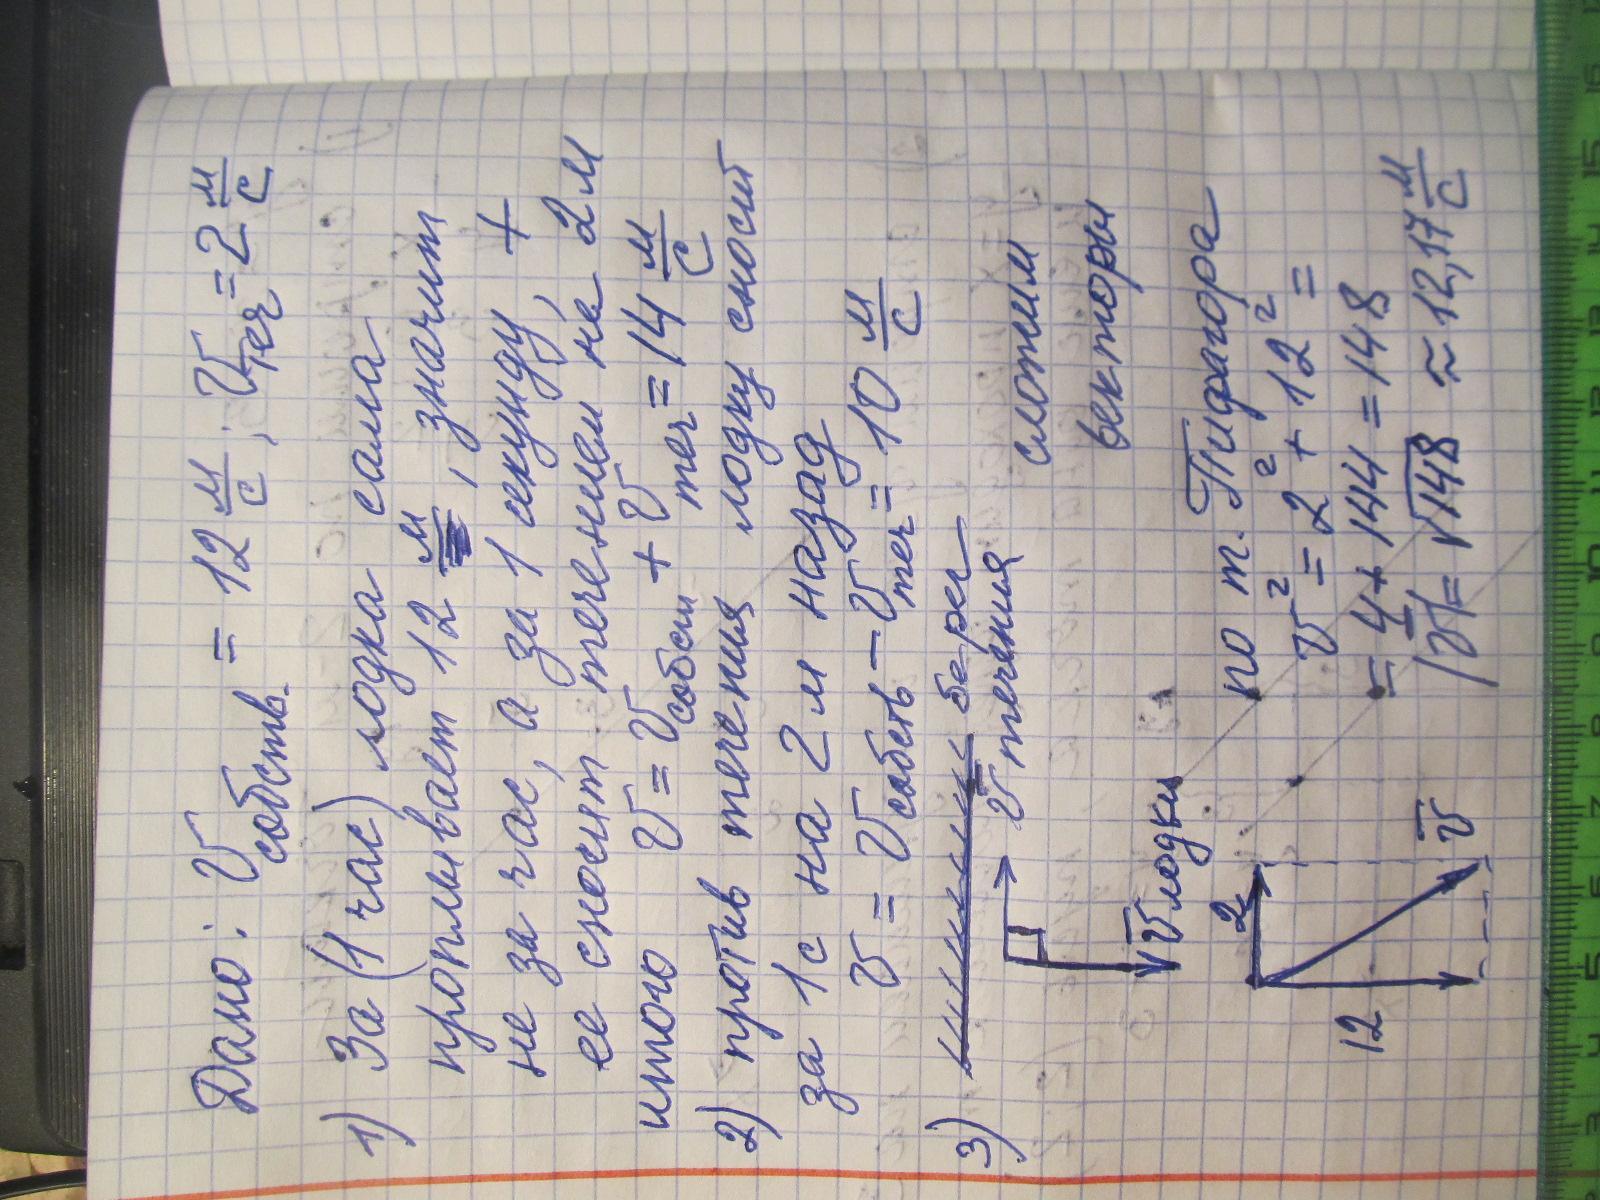 Дано: V собств. = 12 м/с, Vтеч = 2 м/с
1) За (1 час) лодка сама
проплывает 12 м, значит
не за час, а за 1 секунду, +
ее сносит течением на 2 м
итого V = V собств + V теч = 14 м/с
2) против течения лодку сносит
за 1 с на 2 м назад
V = V собств − V теч = 10 м/с
3) берег
V течения
V лодки
сложим
векторы
2
12
V
по т. Пифагора
V² = 2² + 12² =
= 4 + 144 = 148
|V| = √148 ≈ 12,17 м/с
3 4 5 6 7 8 9 10 11 12 13 14 15 16